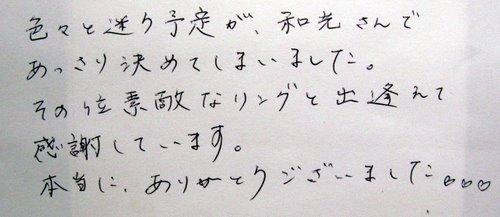 色々と迷う予定が、和光さんで
あっさり決めてしまいました。
その位素敵なリングと出逢えて
感謝しています。
本当に、ありがとうございました♡♡♡